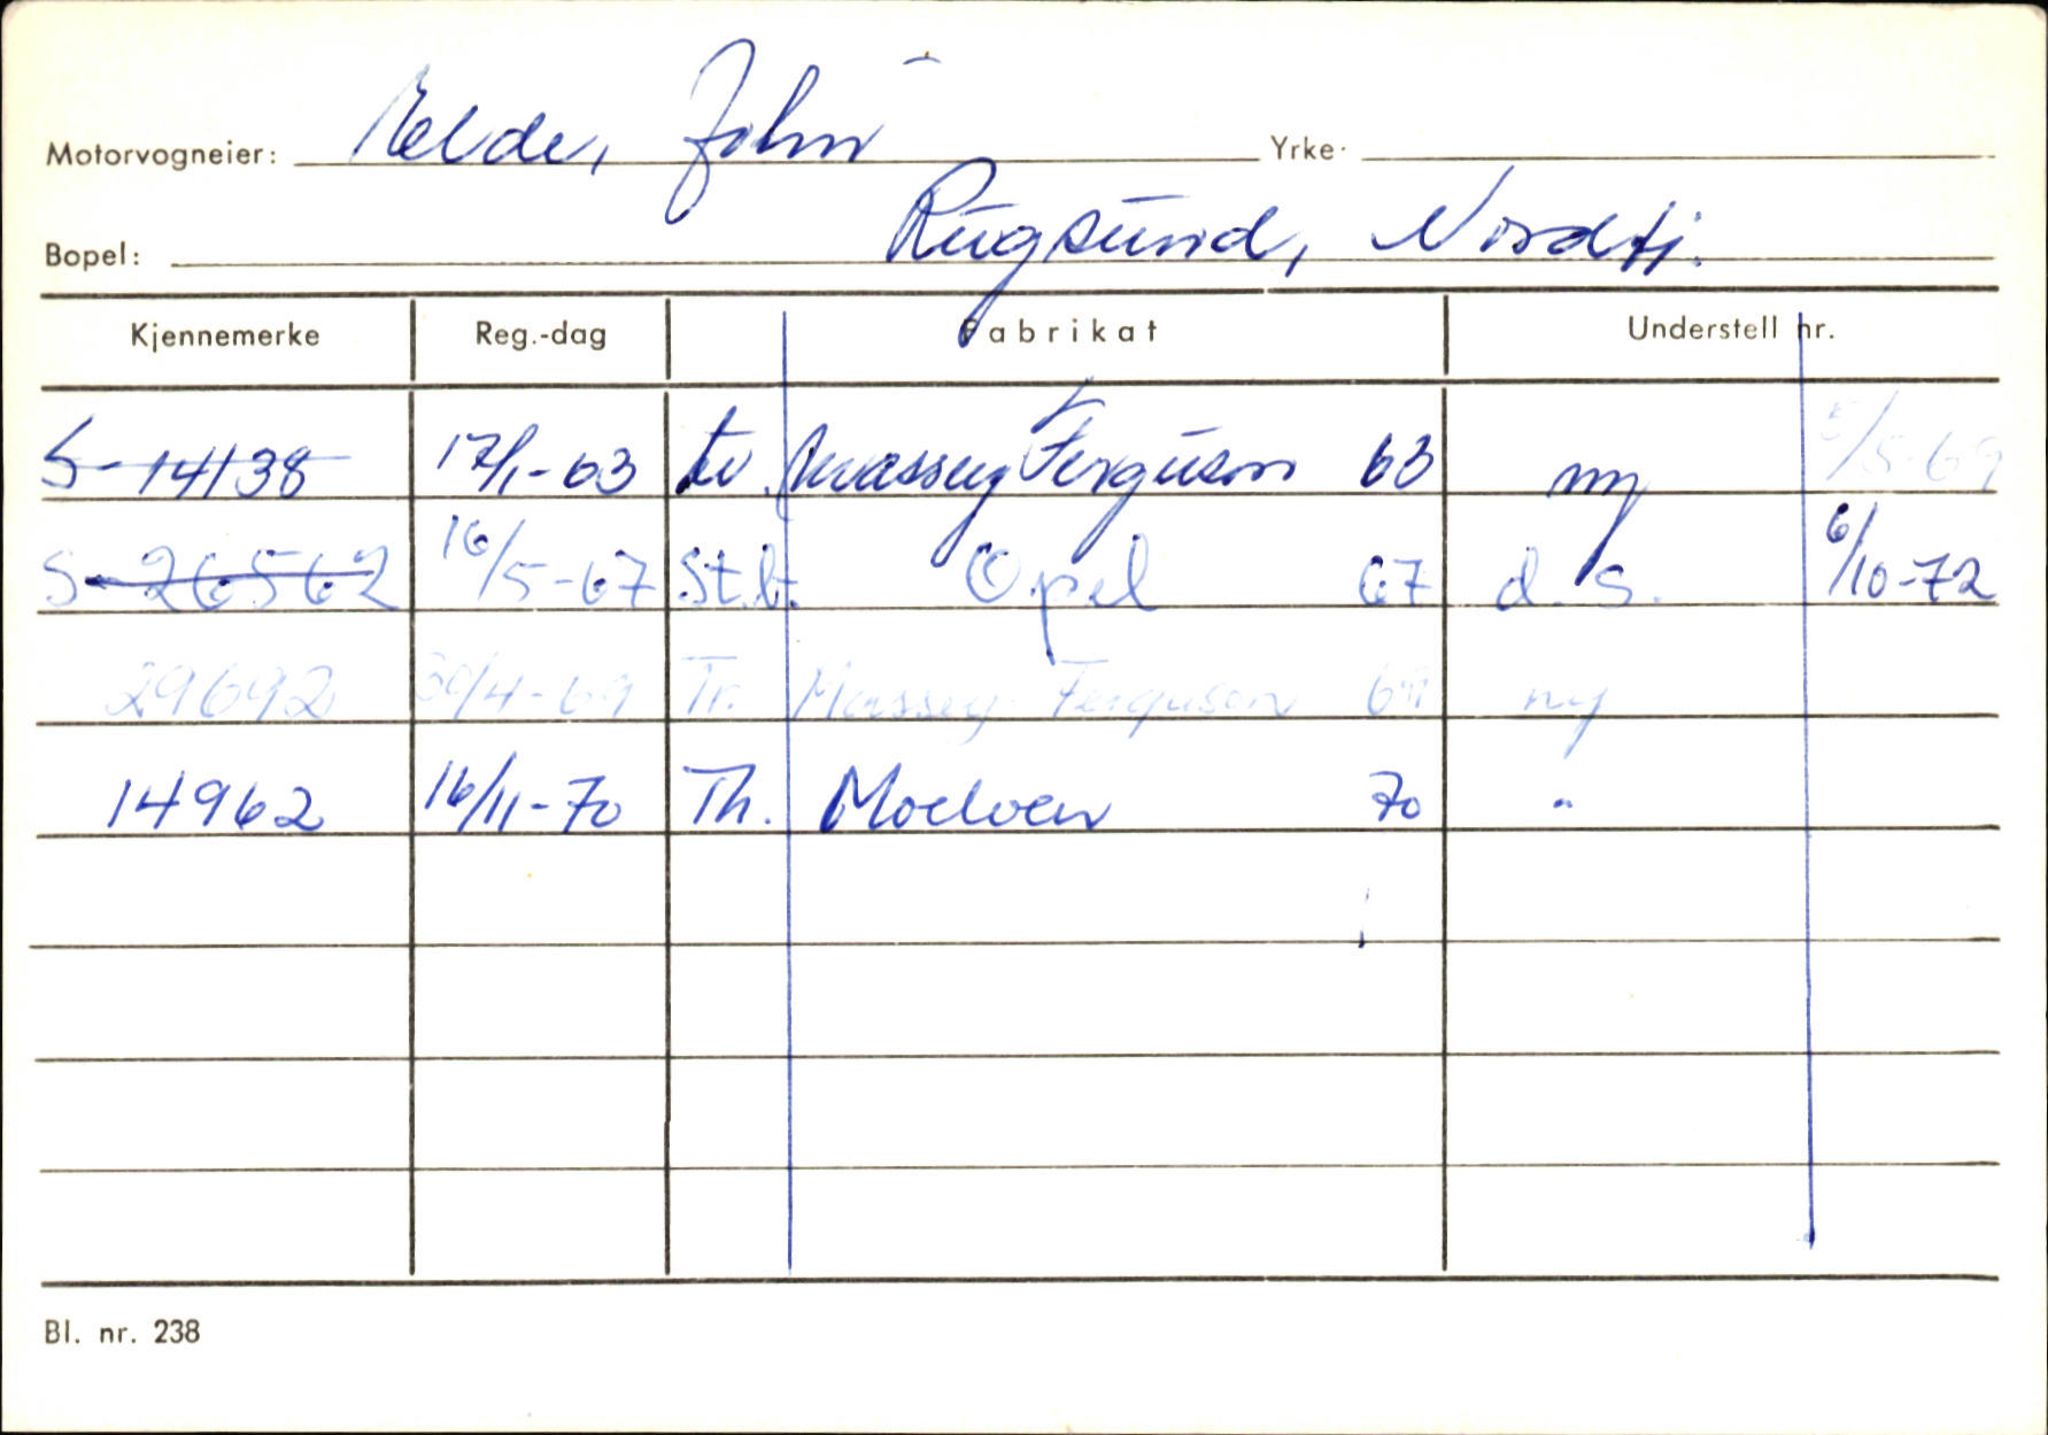 Motorvogneier: Elde, John Yrke:
Bopel: Rugsund, Nordfj.
Kjennemerke Reg.-dag Fabrikat Understell nr.
S-14138 17/1-63 tr. Massey Ferguson 63 ny 5/5-69
S-26562 16/5-67 St.b. Opel 67 d.s. 6/10-72
29692 30/4-69 Tr. Massey-Ferguson ny
14962 16/11-70 Th. Moelven 70 "
Bl. nr. 238